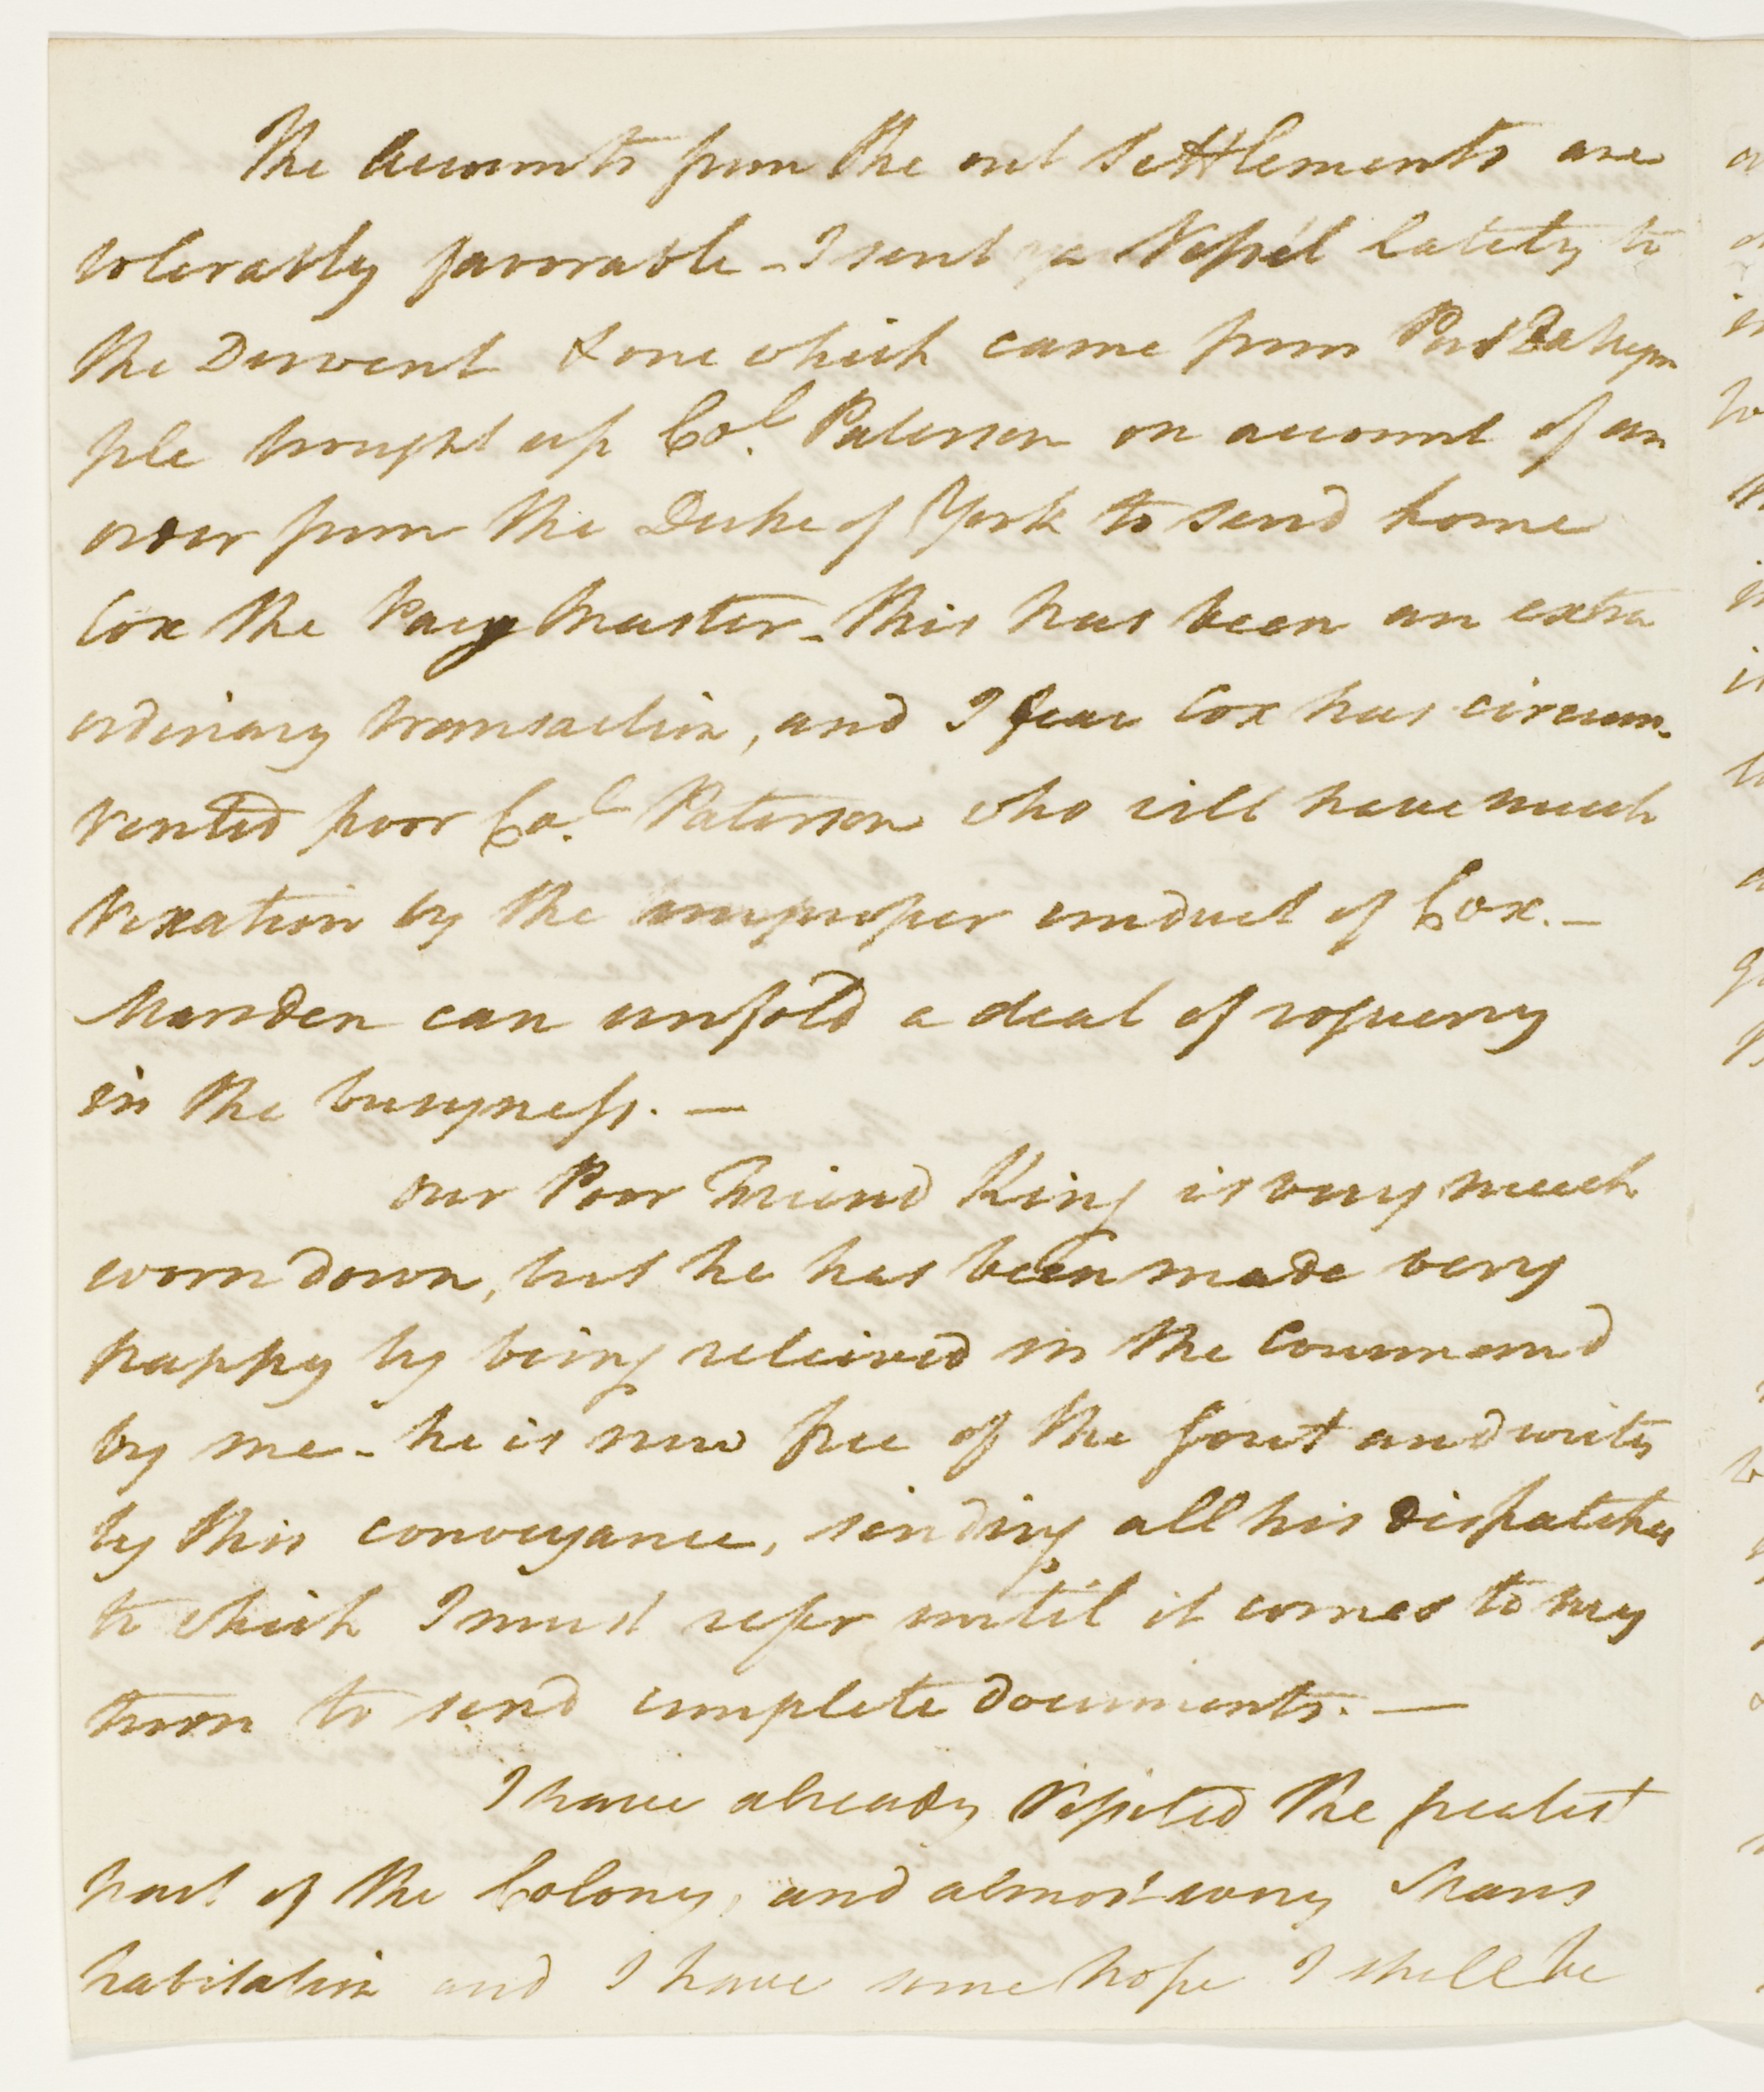 The Accounts from the out Settlements are
tolerably favorable - I sent a Vessel lately to
the Derwent & one which came from Port Dalrym
ple brought up Col. Paterson on account of an
order from the Duke of York to send home
Cox the Pay Master - this has been an extra
ordinary transaction, and I fear Cox has circum-
vented poor Col. Paterson who will have much
vexation by the improper conduct of Cox. —
Marsden can unfold a deal of roguery
in the busyness. —
Our Poor Friend King is very much
worn down, but he has been made very
happy by being releived in the Command
by me - he is now free of the Gout and writes
by this conveyance, sending all his dispatches
to which I must refer until it comes to my
turn to send complete documents. —
I have already Visited the greatest
part of the Colony, and almost every Mans
habitation and I have some hope I shall be